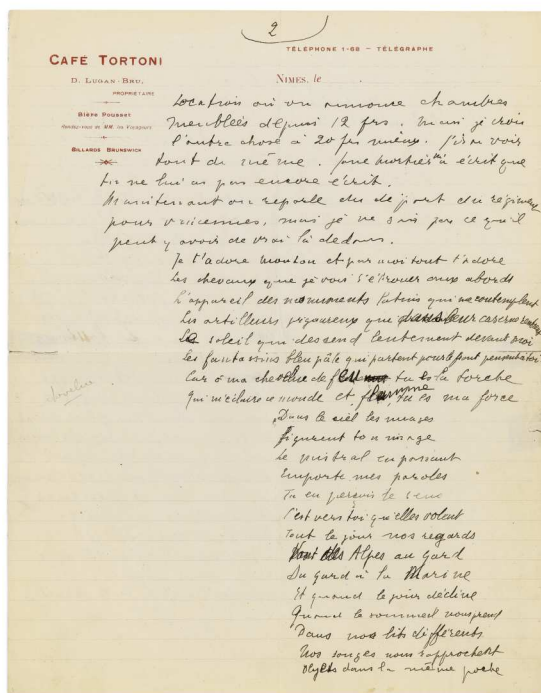 2
CAFÉ TORTONI
D. LUGAN-BRU,
PROPRIÉTAIRE
Bière Pousset
Rendez-vous de MM. les Voyageurs
BILLARDS BRUNSWICK
TÉLÉPHONE 1-68 — TÉLÉGRAPHE
NIMES, le
Locations où on annonce chambres
meublées depuis 12 frs. mais je crois
l'autre chose à 20 frs mieux. J'irai voir
tout de même. mortier a écrit que
tu ne lui as pas encore écrit.
Maintenant on reparle du départ du régiment
pour vincennes, mais je ne sais pas ce qu'il
peut y avoir de vrai là dedans.
Je t'adore mon Lou et par moi tout t'adore
Les chevaux que je vois s'ébrouer aux abords
L'appareil des monuments latins qui me contemplent
Les artilleurs vigoureux qui dans leur caserne rentrent
Le soleil qui descend lentement devant moi
Les fantassins bleu pâle qui partent pour le front pensent à toi
Car ô ma chevelue de feu tu es la torche
Qui m'éclaire ce monde et flamme tu es ma force
Dans le ciel les nuages
Figurent ton image
Le mistral en passant
Emporte mes paroles
Tu en perçois le sens
C'est vers toi qu'elles volent
Tout le jour nos regards
Vont des Alpes au Gard
Du Gard à la Marine
Et quand le jour décline
Quand le sommeil nous prend
Dans nos lits différents
Nos songes nous rapprochent
Objets dans la même poche